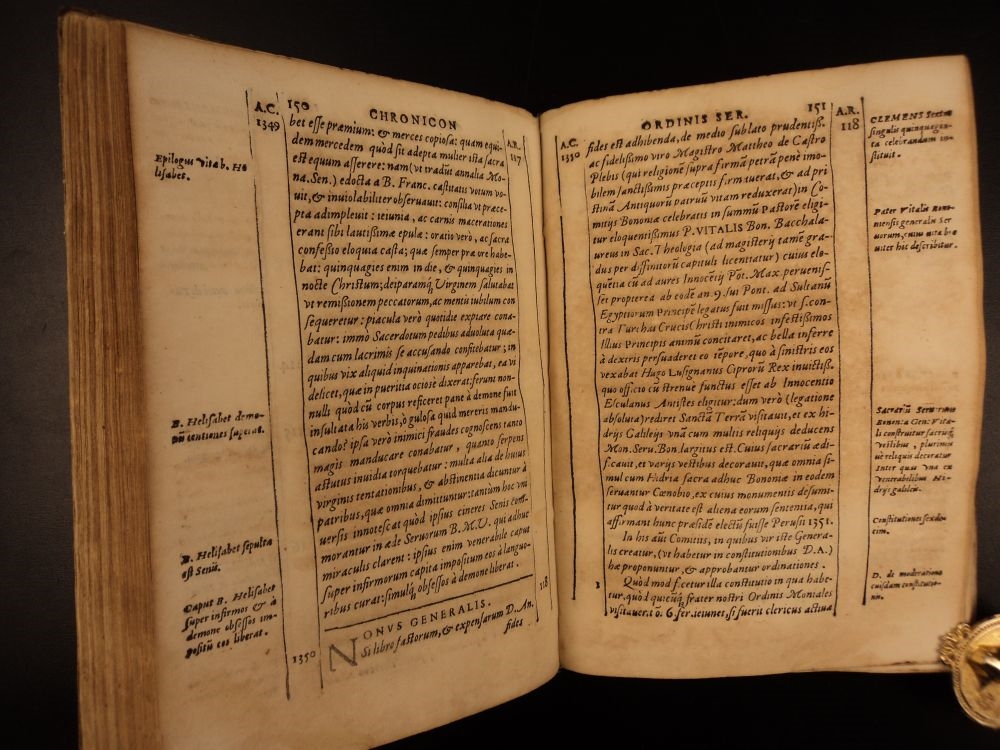 A.C. 150 CHRONICON
1349 A.R.
117
bet esse præmium: & merces copiosa: quam equi-
dem mercedem quòd sit adepta mulier ista sacra
est equum asserere: nam (vt tradũt annalia Mo-
na. Sen.) edocta a B. Franc. castitatis votum vo-
uit, & inuiolabiliter obseruauit: consilia vt præce-
pta adimpleuit: ieiunia, ac carnis macerationes
erant sibi lautissimæ epulæ: oratio verò, ac sacra
confessio eloquia casta; quæ semper præ ore habe-
bat: quinquagies enim in die, & quinquagies in
nocte Christum; deiparamq́; Virginem salutabat
vt remissionem peccatorum, ac mentis iubilum con
sequeretur: piacula verò quotidie expiare cona-
batur: immò Sacerdotum pedibus aduoluta quæ-
dam cum lacrimis se accusando confitebatur; in
quibus vix aliquid inquinationis apparebat, ea vi
delicet, quæ in pueritia ociosè dixerat: ferunt non-
nulli quod cũ corpus reficeret pane à demone fuit
insultata his verbis, ò gulosa quid mereris mandu-
cando? ipsa verò inimici fraudes cognoscens tanto
magis manducare conabatur, quanto serpens
astutus inuidia torquebatur: multa alia de huius
virginis tentationibus, & abstinentia dicuntur à
patribus, quæ omnia dimittuntur: tantùm hoc vni
uersis innotescat quòd ipsius cineres Senis com-
morantur in æde Seruorum B. M. V. qui adhuc
miraculis clarent: ipsius enim venerabile caput
super infirmorum capita impositum eos à languo-
ribus curat: simulq́; obsessos à demone liberat.
118
1350 NONVS GENERALIS.
Si libro factorum, & expensarum D. An.
fides
Epilogus vita b. He
lisabet.
B. Helisabet demo-
nũ tentiones superat.
B. Helisabet sepulta
est Senis.
Caput B. Helisabet
super infirmos & à
demone obsessos im-
positũ eos liberat.
ORDINIS SER. 151
A.C. A.R.
1350 118
fides est adhibenda, de medio sublato prudentiss.
ac fidelissimo viro Magistro Mattheo de Castro
Plebis (qui religionẽ supra firmã petrã penè imo-
bilem sanctissimis præceptis firmauerat, & ad pri
stinã Antiquorũ patruũ vitam reduxerat) in Co-
mitijs Bononiæ celebratis in summũ Pastorẽ eligi-
tur eloquentissimus P. VITALIS Bon. Bacchala-
ureus in Sac. Theologia (ad magisterij tamẽ gra-
dus per diffinitorũ capituli licentiatur) cuius elo-
quẽtia cũ ad aures Innocẽtij Põt. Max. peruenis-
set propterea ab codẽ an. 9. sui Pont. ad Sultanũ
Egyptiorum Principẽ legatus fuit missus: vt s. con-
tra Turchas Crucis Christi inimicos infestissimos
Illius Principis animũ concitaret, ac bella inferre
à dextris persuaderet eo tẽpore, quo à sinistris eos
vexabat Hugo Lusignanus Ciprorũ Rex inuictiss.
quo officio cũ strenue functus esset ab Innocentio
Esculanus Antistes eligitur: dum verò (legatione
absoluta) rediret Sanctã Terrã visitauit, et ex hi-
drijs Galileijs vnã cum multis reliquijs deducens
Mon. Seru. Bon. largitus est. Cuius sacrariũ ædi-
ficauit, et varijs vestibus decorauit, quæ omnia si-
mul cum Hidria sacra adhuc Bononiæ in eodem
seruantur Cœnobio, ex cuius monumentis desumi-
tur quod à veritate est aliena eorum sententia, qui
affirmant hunc præsidẽ electũ fuisse Perusii 1351.
In his aũt Comitiis, in quibus vir iste Genera-
lis creatur, (vt habetur in constitutionibus D. A.)
hæ proponuntur, & approbantur ordinationes.
1 Quòd modificetur illa constitutio in qua habe-
tur, quòd quicũq́; frater nostri Ordinis Moniales
visitauerit 6. fer. ieiunet, si fuerit clericus actiua
CLEMENS Sextus
singulis quinquagen-
ta celebrandum in-
stituit.
Pater Vitalis Bono-
niensis generalis Ser
uorum, cuius vita bre
uiter hic describitur.
Sacrariũ Seruorum
Bonon: a Gen: Vita-
li construitur sacrisq́;
vestibus, plurimis
ue reliquis decoratur
Inter quas vna ex
venerabilibus Hi-
drijs galileis.
Constitutiones sexde-
cim.
D. de moderatione
cuiusdam constitutio-
nis.